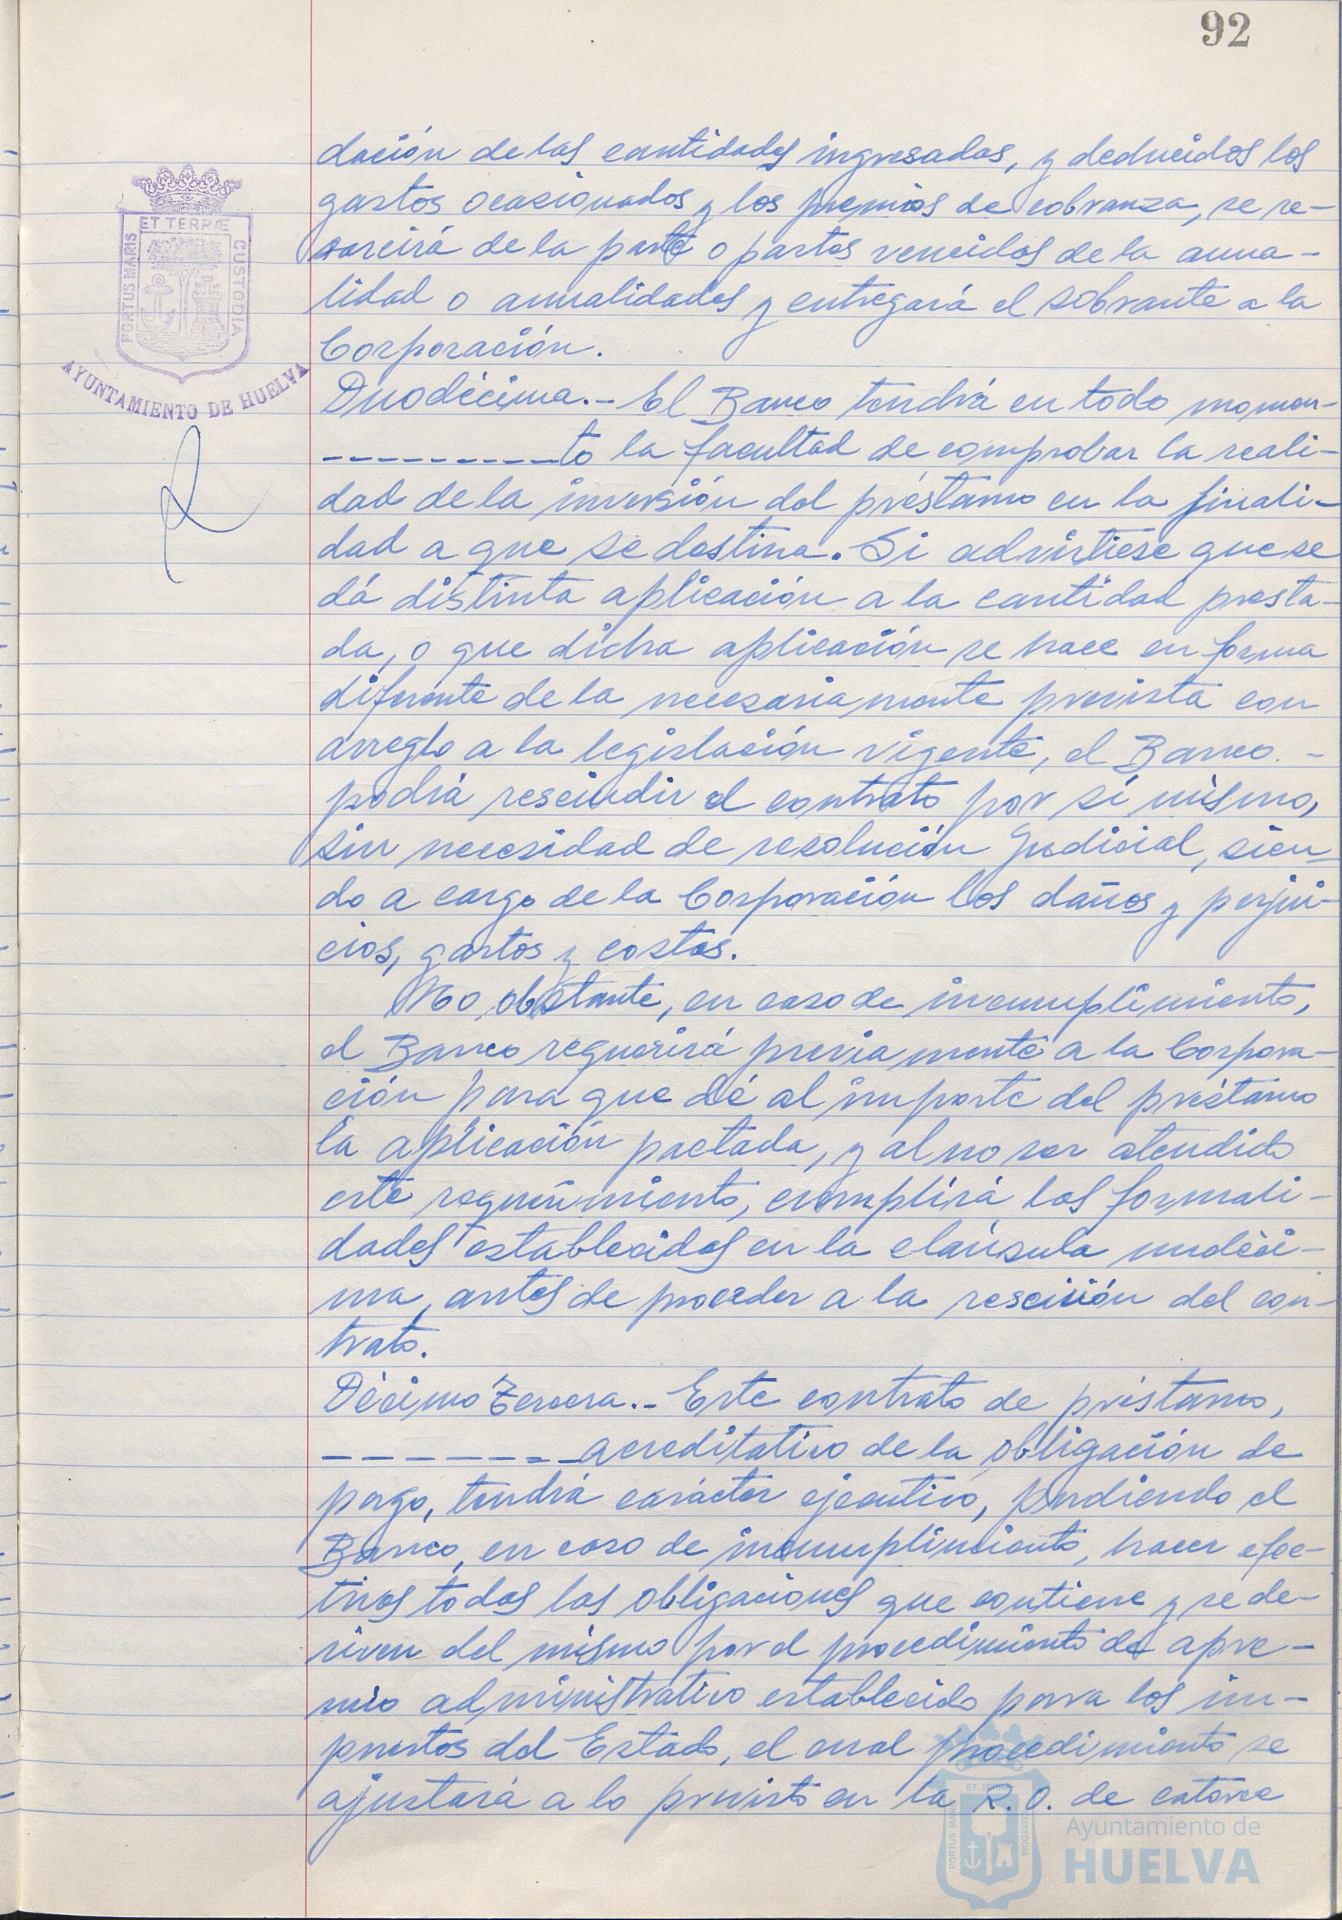 92
dación de las cantidades ingresadas, y deducidos los
gastos ocasionados y los premios de cobranza, se re-
sarcirá de la parte o partes vencidas de la anua-
lidad o anualidades y entregará el sobrante a la
Corporación.
Duodécima.- El Banco tendrá en todo momen-
---------to la facultad de comprobar la reali-
dad de la inversión del préstamo en la finali-
dad a que se destina. Si advirtiese que se
dá distinta aplicación a la cantidad presta-
da, o que dicha aplicación se hace en forma
diferente de la necesariamente prevista con
arreglo a la legislación vigente, el Banco.-
podrá rescindir el contrato por sí mismo,
sin necesidad de resolución Judicial, sien-
do a cargo de la Corporación los daños y perjui-
cios, gastos y costas.
No, obstante, en caso de incumplimiento,
el Banco requerirá previamente a la Corpora-
ción para que dé al importe del préstamo
la aplicación pactada, y al no ser atendido
este requerimiento, cumplirá las formali-
dades establecidas en la cláusula undéci-
ma, antes de proceder a la rescisión del con-
trato.
Décimo Tercera.- Este contrato de préstamo,
---------acreditativo de la obligación de
pago, tendrá carácter ejecutivo, pudiendo el
Banco, en caso de incumplimiento, hacer efec-
tivas todas las obligaciones que contiene y se de-
riven del mismo por el procedimiento de apre-
mio administrativo establecido para los im-
puestos del Estado, el cual procedimiento se
ajustará a lo previsto en la R.O. de catorce
ET TERRÆ
PORTUS MARIS
CUSTODIA
AYUNTAMIENTO DE HUELVA
Ayuntamiento de
HUELVA